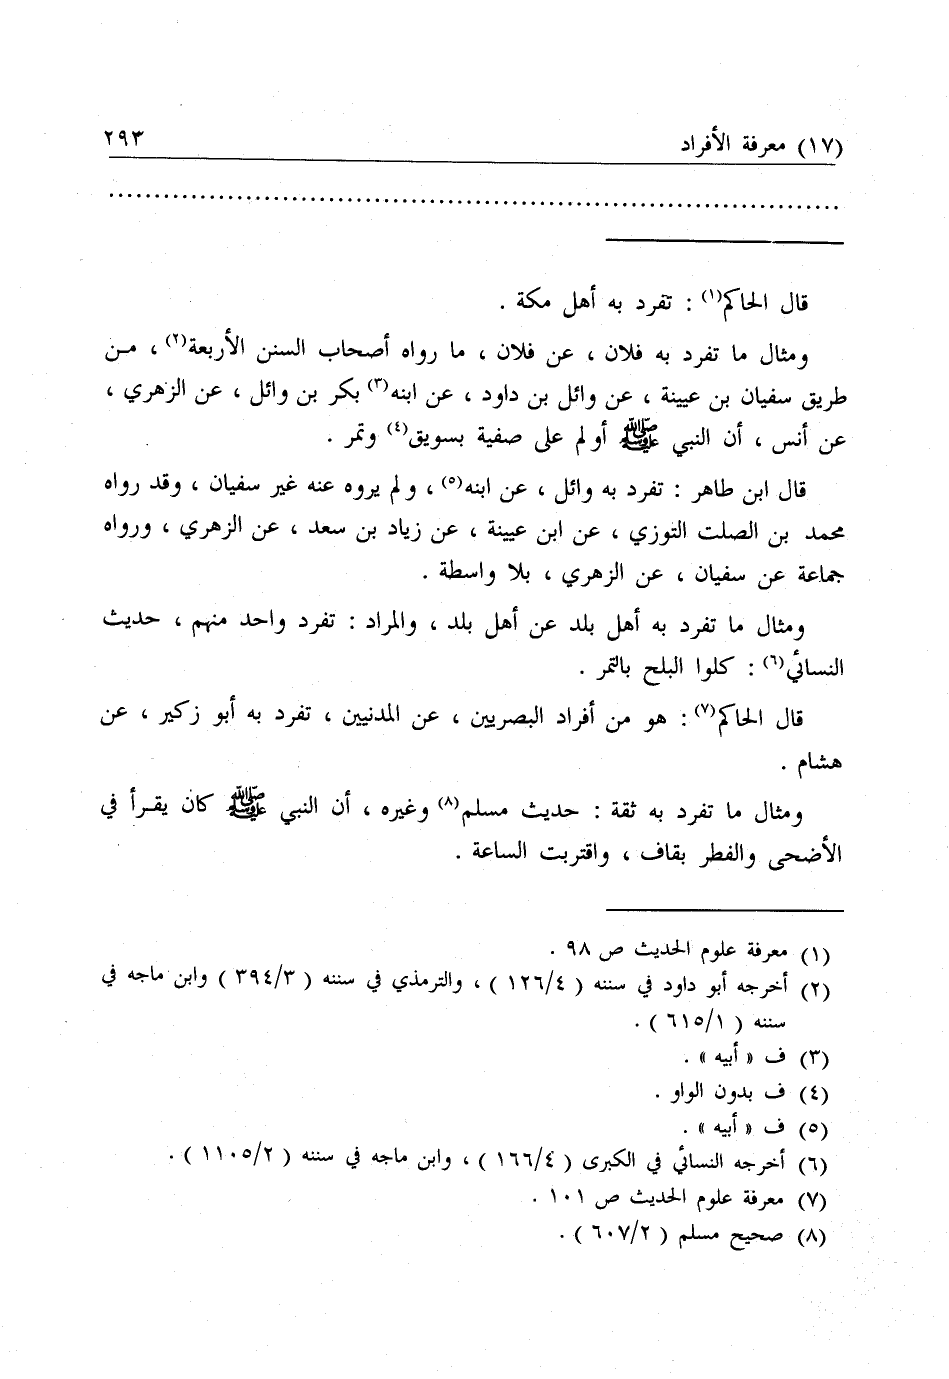 (١٧) معرفة الأفراد ٢٩٣
قال الحاكم(١) : تفرد به أهل مكة .
ومثال ما تفرد به فلان ، عن فلان ، ما رواه أصحاب السنن الأربعة(٢) ، مـن
طريق سفيان بن عيينة ، عن وائل بن داود ، عن ابنه(٣) بكر بن وائل ، عن الزهري ،
عن أنس ، أن النبي ﷺ أولم على صفية بسويق(٤) وتمر .
قال ابن طاهر : تفرد به وائل ، عن ابنه(٥) ، ولم يروه عنه غير سفيان ، وقد رواه
محمد بن الصلت التوزي ، عن ابن عيينة ، عن زياد بن سعد ، عن الزهري ، ورواه
جماعة عن سفيان ، عن الزهري ، بلا واسطة .
ومثال ما تفرد به أهل بلد عن أهل بلد ، والمراد : تفرد واحد منهم ، حديث
النسائي(٦) : كلوا البلح بالتمر .
قال الحاكم(٧) : هو من أفراد البصريين ، عن المدنيين ، تفرد به أبو زكير ، عن
هشام .
ومثال ما تفرد به ثقة : حديث مسلم(٨) وغيره ، أن النبي ﷺ كان يقـرأ في
الأضحى والفطر بقاف ، واقتربت الساعة .
(١) معرفة علوم الحديث ص ٩٨ .
(٢) أخرجه أبو داود في سننه ( ١٢٦/٤ ) ، والترمذي في سننه ( ٣٩٤/٣ ) وابن ماجه في
سننه ( ٦١٥/١ ) .
(٣) ف « أبيه » .
(٤) ف بدون الواو .
(٥) ف « أبيه » .
(٦) أخرجه النسائي في الكبرى ( ١٦٦/٤ ) ، وابن ماجه في سننه ( ١١٠٥/٢ ) .
(٧) معرفة علوم الحديث ص ١٠١ .
(٨) صحيح مسلم ( ٦٠٧/٢ ) .